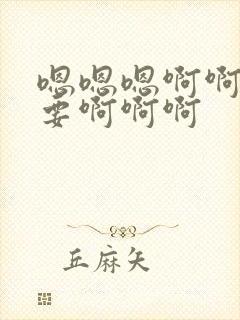 嗯嗯嗯啊啊
要啊啊啊
丘麻矢